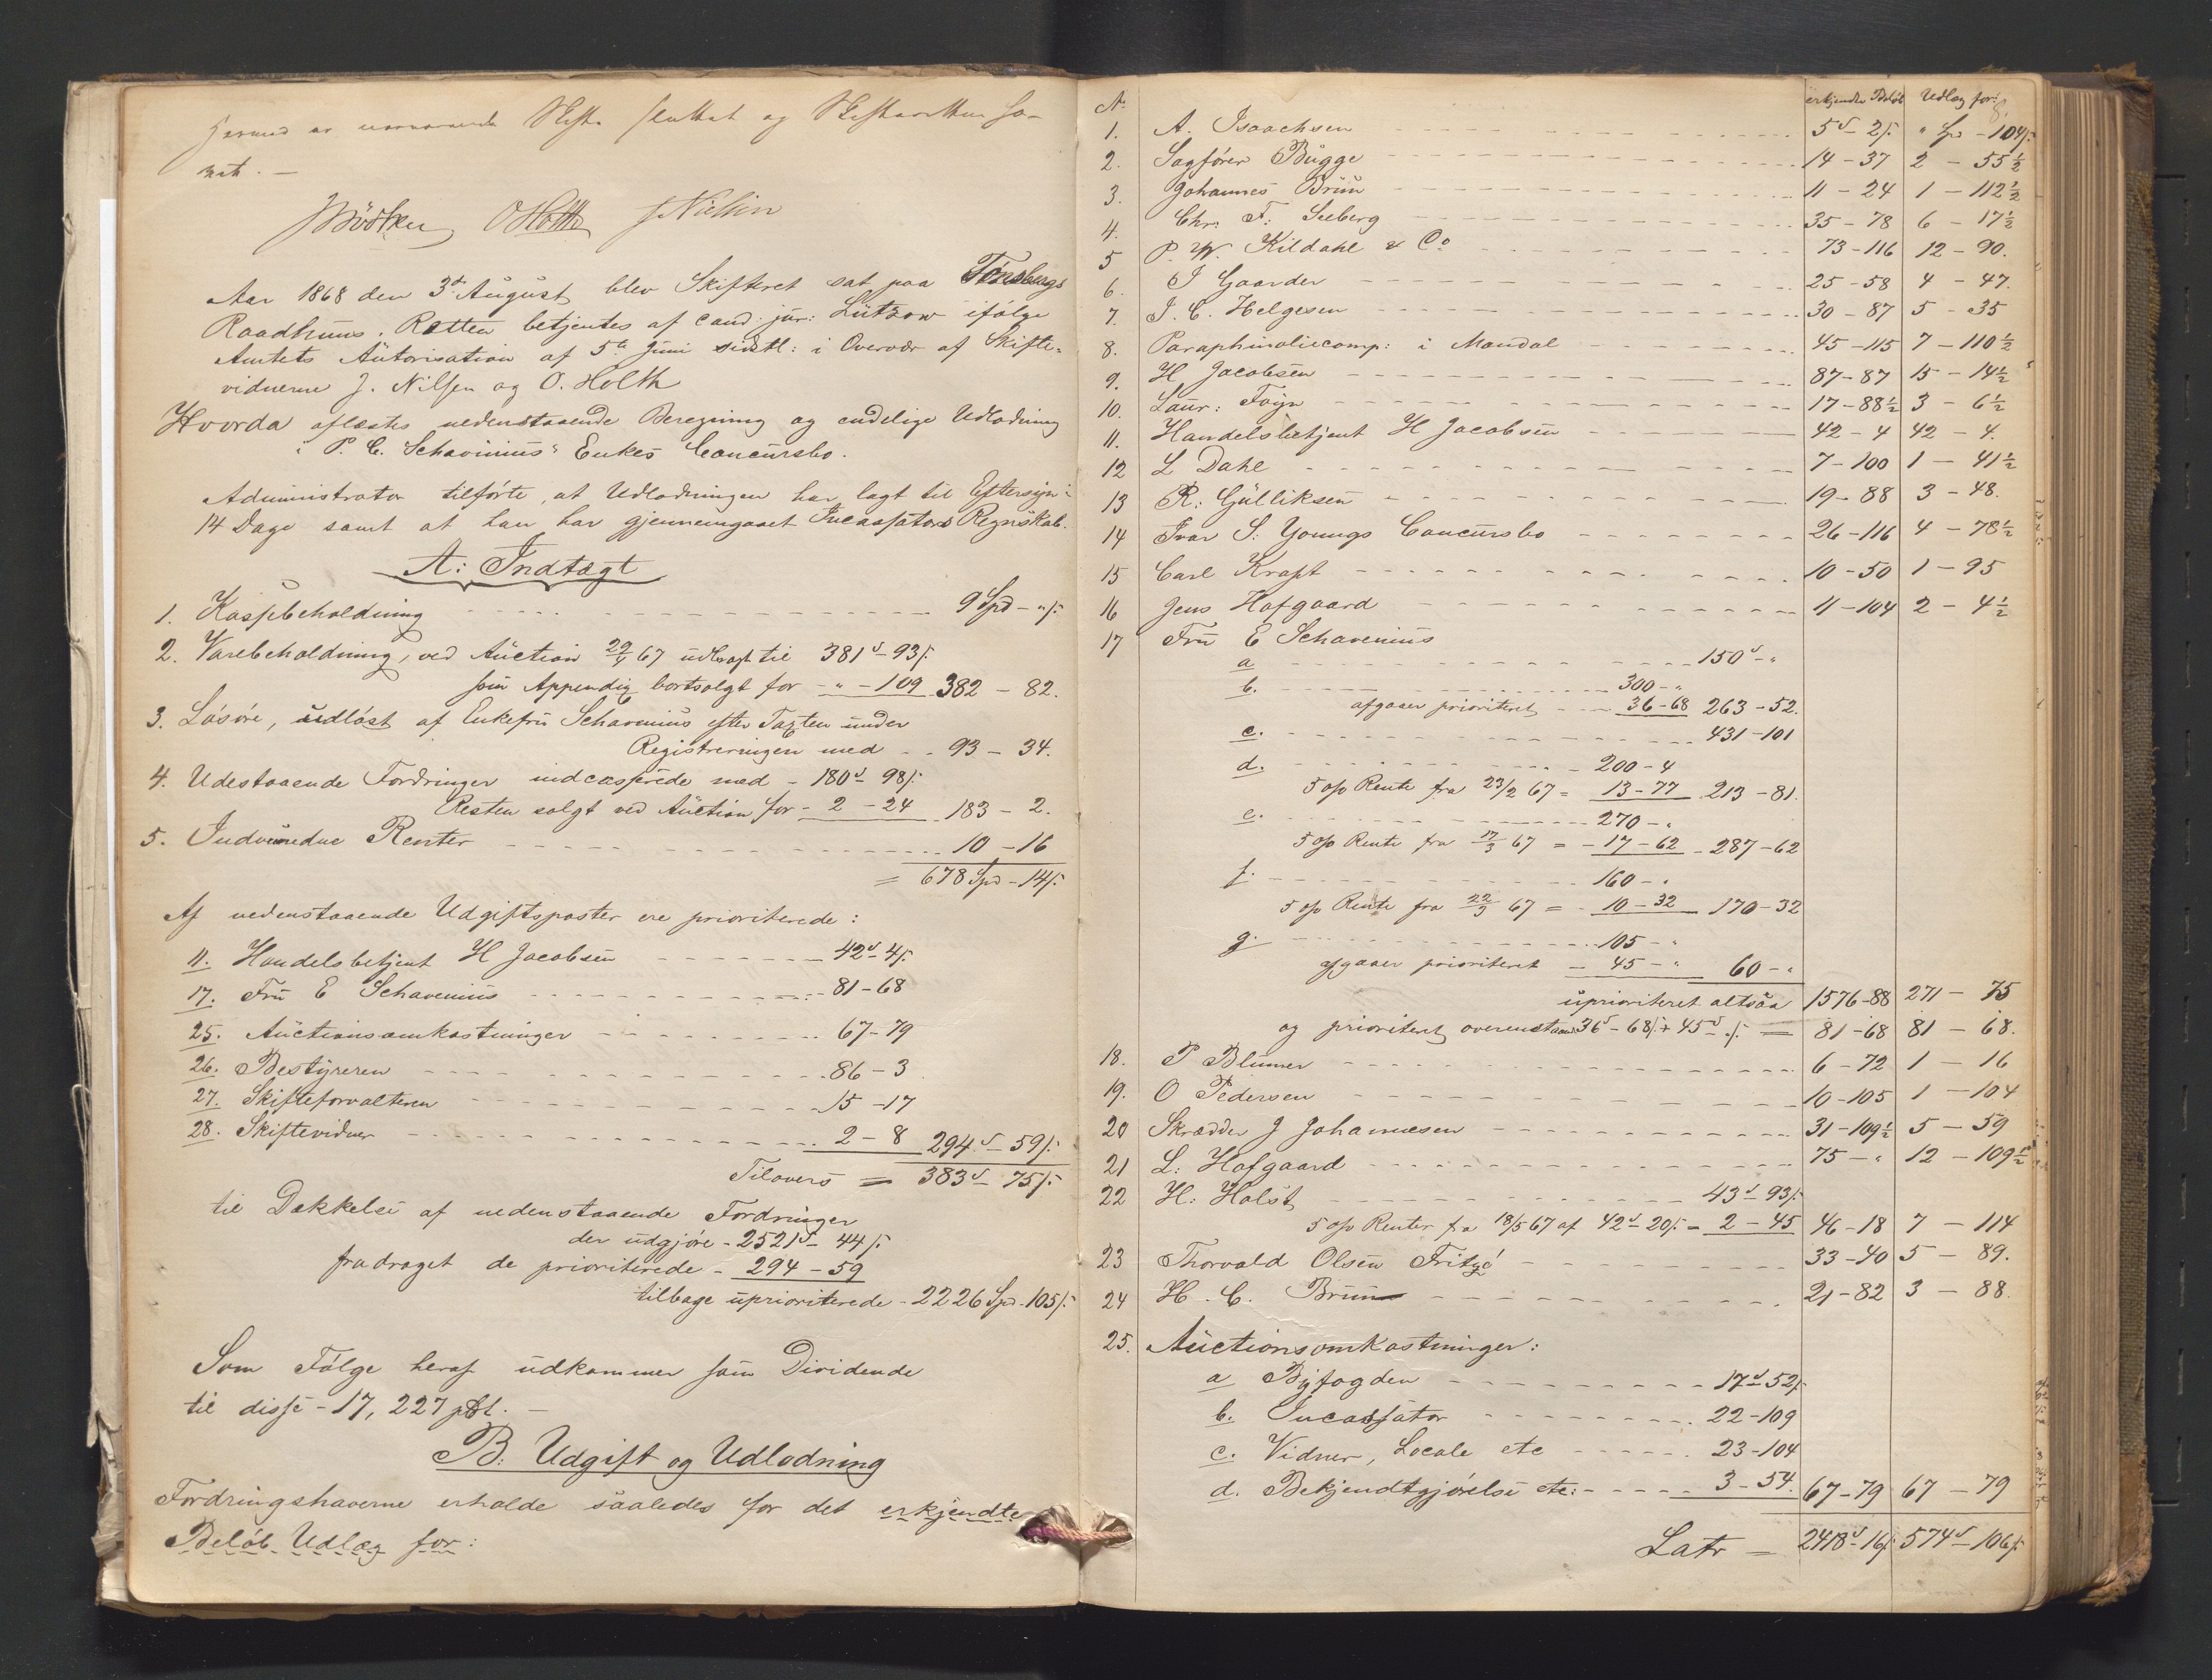 Hermed er nærværende Skifte sluttet og Skifteretten hæ-
vet. —
Bödtker OHolth JNielsen
Aar 1868 den 3die August blev Skifteret sat paa Tönsbergs
Raadhuus. Retten betjentes af cand. jur: Lützow ifölge
Amtets Autorisation af 5te Juni sidstl: i Overvær af Skifte-
vidnerne J. Nilsen og O. Holth
Hvorda aflæstes nedenstaaende Beregning og endelige Udlodning
i P. C. Schavinius' Enkes Concursbo.
Administrator tilförte, at Udlodningen har lagt til Eftersyn i
14 Dage samt at han har gjennemgaaet Incassators Regnskab.
A: Indtægt
1. Kassebeholdning — 9 Spd — " /:
2. Varebeholdning, ved Auction 29/4 67 udbragt til 381 - 93 /:
Appendix bortsolgt for - " - 109 382 - 82.
3. Lösöre, udlöst af Enkefru Schavenius efter Taxten under
Registreringen med - - 93 - 34.
4. Udestaaende Fordringer indcasserede med - 180 - 98 /:
Resten solgt ved Auction for - 2 - 24 183 - 2.
5. Indvundne Renter — 10 - 16
= 678 Spd - 14 /:
Af nedenstaaende Udgiftsposter ere prioriterede:
11. Handelsbetjent H Jacobsen — 42 - 4 /:
17. Fru E Schavenius — 81 - 68
25. Auctionsomkostninger — 67 - 79
26. Bestyreren — 86 - 3
27. Skifteforvalteren — 15 - 17
28. Skiftevidner — 2 - 8 294 - 59 /:
Tilovers = 383 - 75 /:
til Dækkelse af nedenstaaende Fordringer
der udgjöre - 2521 - 44 /:
fradraget de prioriterede - 294 - 59
tilbage uprioriterede - 2226 Spd - 105 /:
Som Fölge heraf udkommer som Dividende
til disse - 17, 227 pCt. —
B: Udgift og Udlodning
Fordringshaverne erholde saaledes for det erkjendte
Belöb Udlæg for:
No erkjendte Belöb Udlæg for: 8.
1. A. Isaachsen — 5 - 2 /: " Spd - 104 /:
2. Sagförer Bugge — 14 - 37 2 - 55 1/2
3. Johannes Bruu — 11 - 24 1 - 112 1/2
4. Chr. F. Seeberg — 35 - 78 6 - 17 1/2
5 P. W. Kildahl & Co — 73 - 116 12 - 90.
6. J Gaarder — 25 - 58 4 - 47.
7. J. C. Helgesen — 30 - 87 5 - 35
8. Paraphinoliecomp: i Mandal — 45 - 115 7 - 110 1/2
9. H Jacobsen — 87 - 87 15 - 14 1/2
10. Laur: Foyn — 17 - 88 1/2 3 - 6 1/2
11. Handelsbetjent H Jacobsen — 42 - 4 42 - 4.
12 L Dahl — 7 - 100 1 - 41 1/2
13 R: Gulliksen — 19 - 88 3 - 48.
14 Ivar S: Youngs Concursbo — 26 - 116 4 - 78 1/2
15 Carl Kraft — 10 - 50 1 - 95
16 Jens Hofgaard — 11 - 104 2 - 4 1/2
17 Fru E Schavenius
a — 150 - "
b. — 300 - "
afgaaer prioriteret - - 36 - 68 263 - 52.
c. — 431 - 101
d. — 200 - 4
5 o/o Rente fra 23/2 67 = 13 - 77 213 - 81.
e. — 270 - "
5 o/o Rente fra 17/3 67 = - 17 - 62 - 287 - 62
f. — 160 - "
5 o/o Rente fra 22/3 67 = - 10 - 32 170 - 32
g. — 105 - "
afgaaer prioriteret - 45 - " 60 - "
uprioriteret altsaa 1576 - 88 271 - 75
og prioriteret ovenst 36 - 68 /: + 45 - /: = 81 - 68 81 - 68.
18. P Blumer — 6 - 72 1 - 16
19. O Pedersen — 10 - 105 1 - 104
20 Skrædder J Johannesen — 31 - 109 1/2 5 - 59
21 L: Hofgaard — 75 - " 12 - 109 1/2
22 H: Holst — 43 - 93 /:
5 o/o Renter fra 18/5 67 af 42 - 20 /: = 2 - 45 46 - 18 7 - 114
23 Thorvald Olsen Fritzö — 33 - 40 5 - 89.
24 H. C. Bruun — 21 - 82 3 - 88.
25. Auctionsomkostninger:
a Byfogden — 17 - 52 /:
b. Incassator — 22 - 109
c. Vidner, Locale etc — 23 - 104
d. Bekjendtgjörelse etc: — 3 - 54. 67 - 79 67 - 79
Latr = 2418 - 16 /: 574 - 106 /: